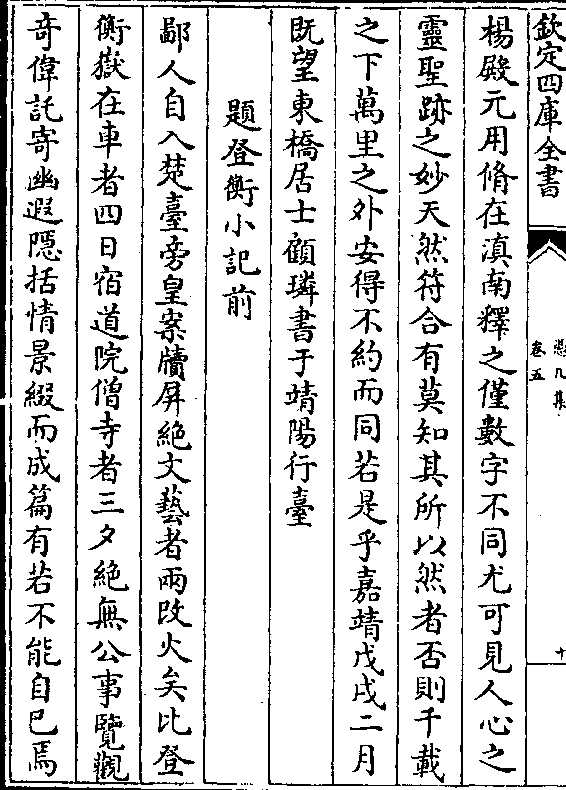 欽定四庫全書
憑几集
卷五
十
楊殿元用脩在滇南釋之僅數字不同尤可見人心之
靈聖跡之妙天然符合有莫知其所以然者否則千載
之下萬里之外安得不約而同若是乎嘉靖戊戌二月
既望東橋居士顧璘書于靖陽行臺
題登衡小記前
鄙人自入楚臺旁皇案牘屏絶文藝者兩改火矣比登
衡嶽在車者四日宿道院僧寺者三夕絶無公事覽觀
奇偉託寄幽遐隱括情景綴而成篇有若不能自已焉